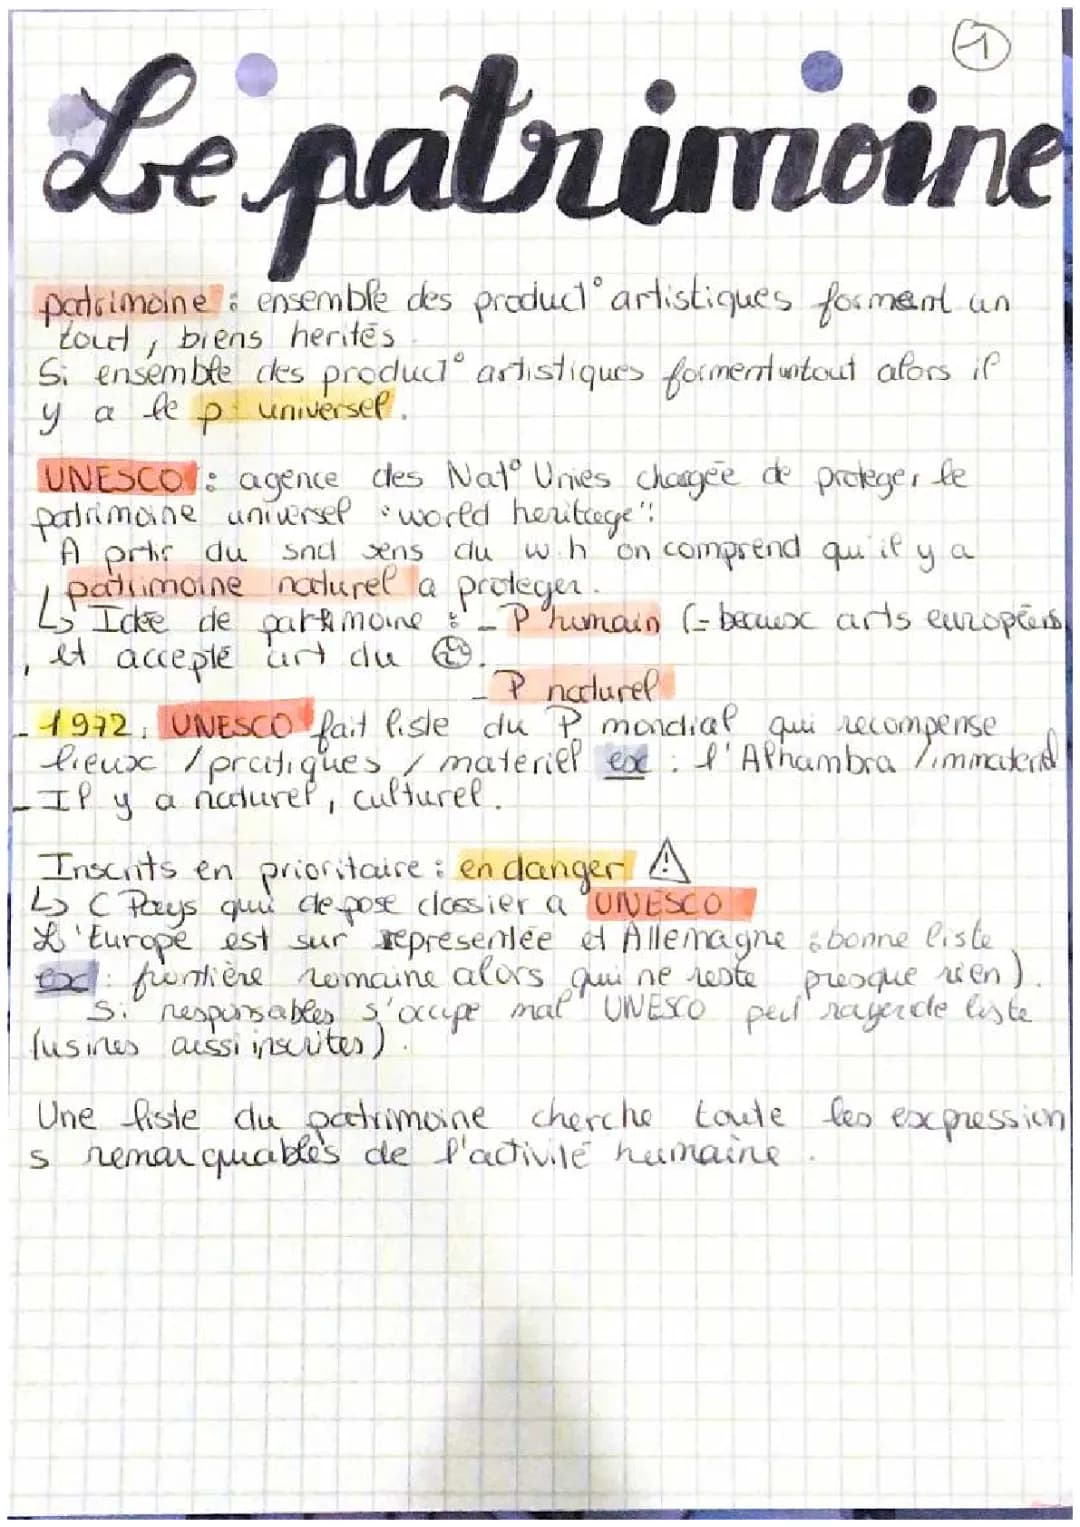 1
Le patrimoine
patrimoine : ensemble des product° artistiques formant un
tout, biens herités.
Si ensemble des product° artistiques forment un tout alors il
y a le p. universel.
UNESCO : agence des Nat° Unies chargée de proteger le
patrimoine universel "world heritage":
A prtir du snd sens du w.h on comprend qu'il y a
patrimoine naturel a proteger.
↳ Idée de patrimoine : - P humain (= beaux arts européens
, et accepté art du 🌍.
- P naturel
- 1972 : UNESCO fait liste du P mondial qui recompense
lieux / pratiques / materiel ex : l'Alhambra / immateriel
- Il y a naturel, culturel.
Inscrits en prioritaire : en danger ⚠
↳ ( Pays qui depose dossier a UNESCO
L'Europe est sur représentée et Allemagne : bonne liste
ex : frontière romaine alors qui ne reste presque rien).
Si responsables s'occupe mal UNESCO peut rayer de liste
(usines aussi inscrites).
Une liste du patrimoine cherche toute les expression
s remarquables de l'activité humaine.